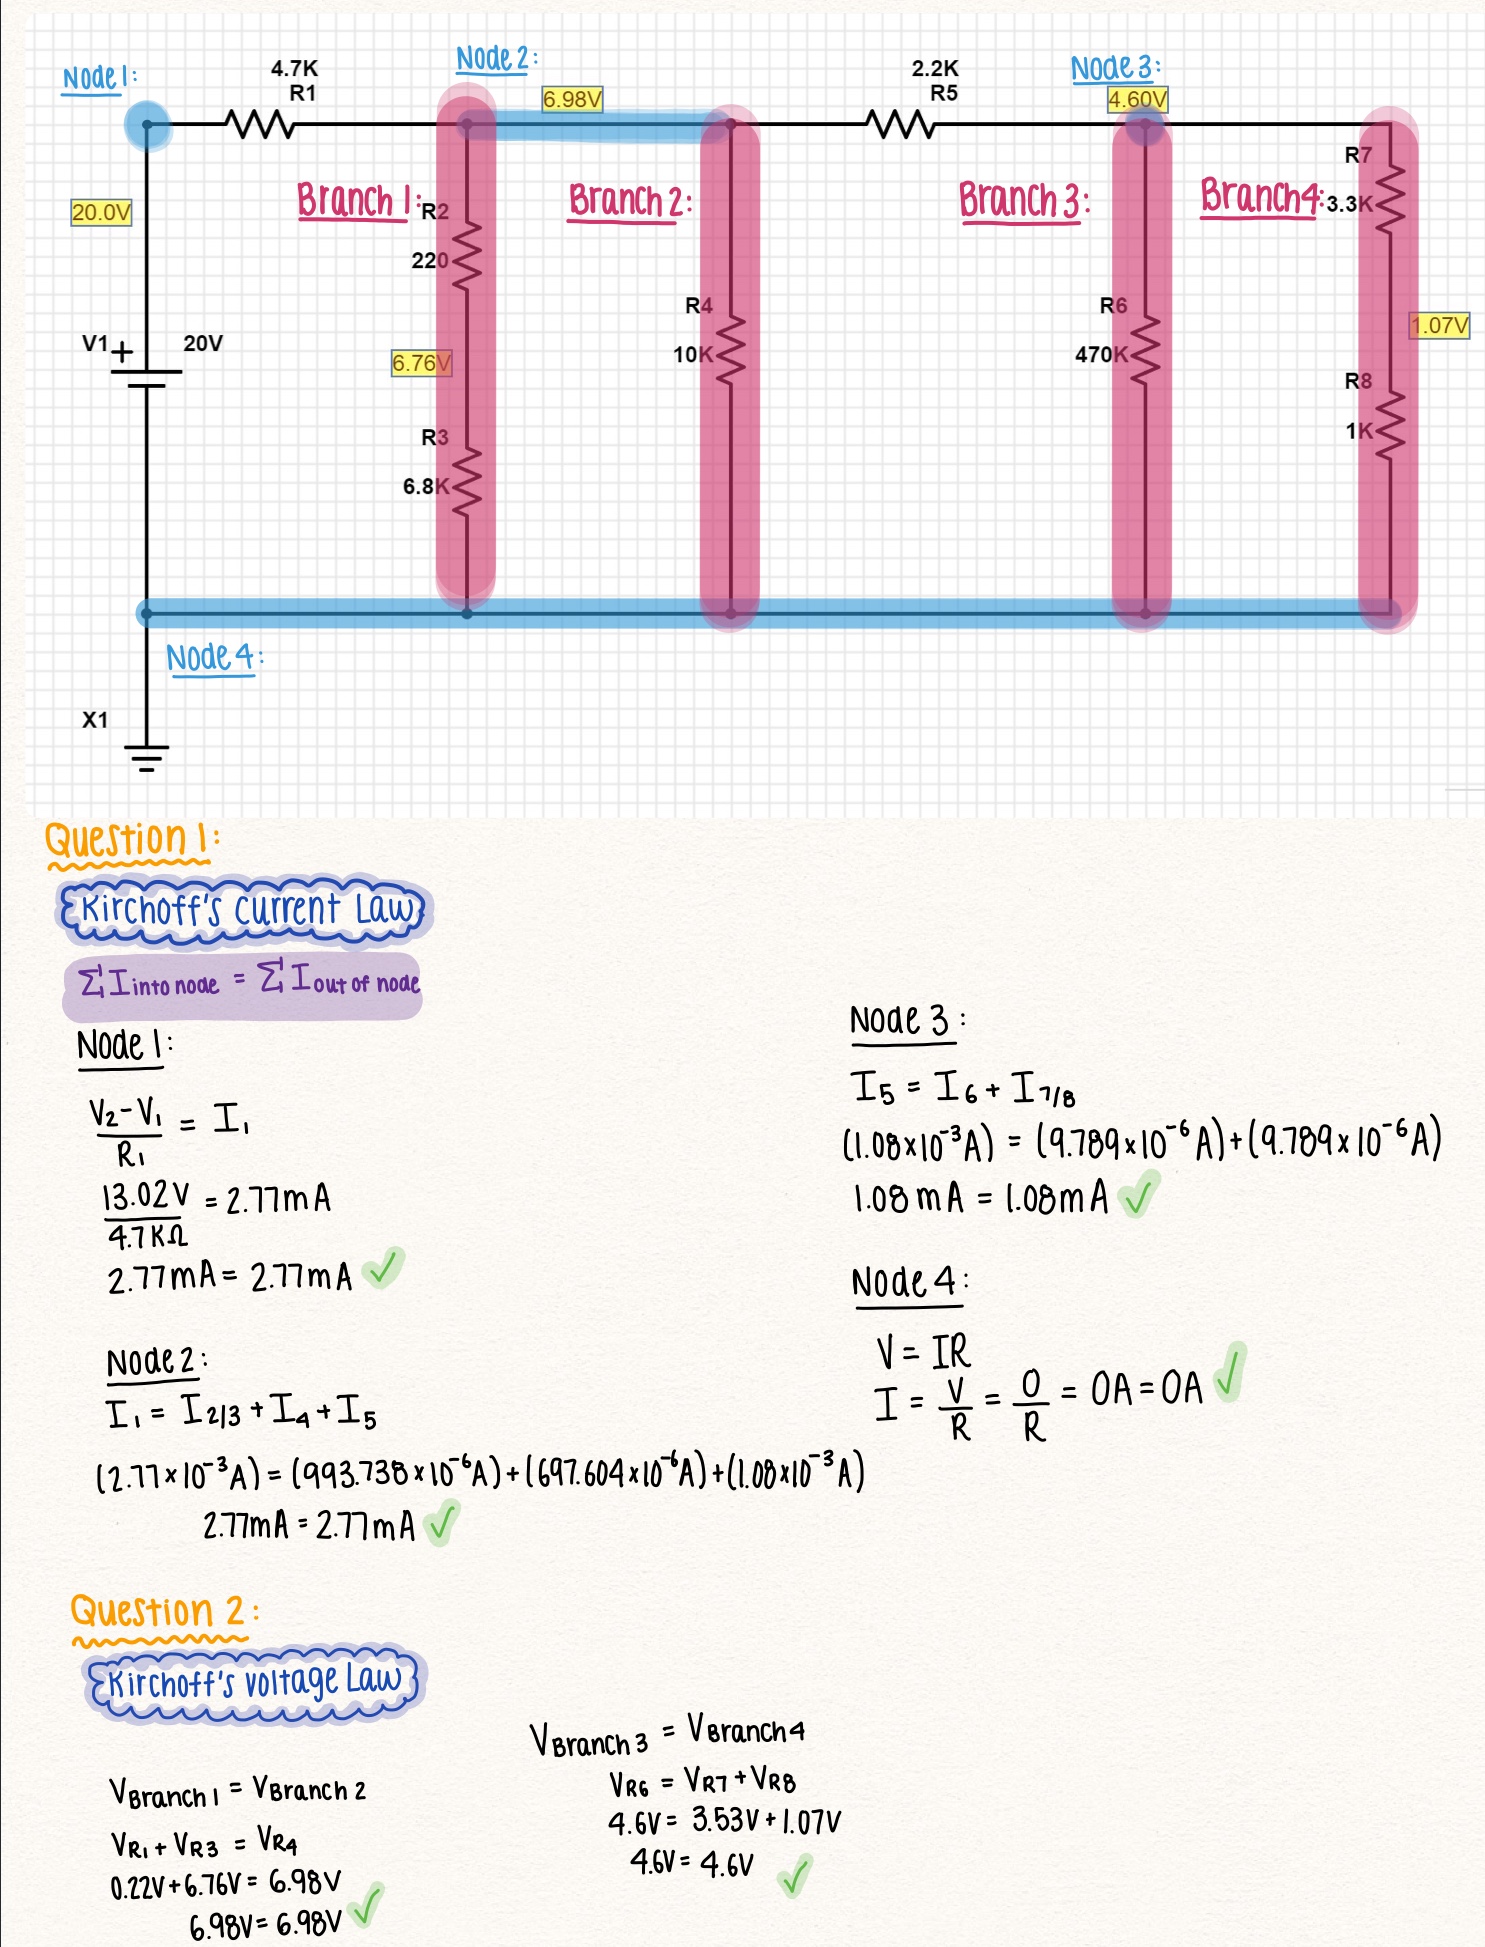 Node 1:
4.7K
R1
Node 2:
6.98V
2.2K
R5
Node 3:
4.60V
20.0V
Branch 1:
R2
220
Branch 2:
Branch 3:
Branch4:
R7
3.3K
V1
+
20V
6.76V
R4
10K
R6
470K
1.07V
R3
6.8K
R8
1K
Node 4:
X1
Question 1:
Kirchoff's current Law
∑ I into node = ∑ I out of node
Node 1:
V₂-V₁
R₁
= I₁
13.02V
4.7KΩ
= 2.77mA
2.77mA = 2.77mA ✓
Node 2:
I₁ = I2/3 + I₄ + I₅
(2.77×10⁻³A) = (993.738×10⁻⁶A)+(697.604×10⁻⁶A)+(1.08×10⁻³A)
2.77mA = 2.77mA ✓
Node 3:
I5 = I6 + I7/8
(1.08×10⁻³A) = (9.789×10⁻⁶A)+(9.789×10⁻⁶A)
1.08mA = 1.08mA ✓
Node 4:
V = IR
I = V/R = 0/R = 0A = 0A ✓
Question 2:
Kirchoff's voltage Law
VBranch 1 = VBranch 2
VR1 + VR3 = VR4
0.22V+6.76V = 6.98V
6.98V = 6.98V ✓
VBranch 3 = VBranch4
VR6 = VR7 + VR8
4.6V = 3.53V + 1.07V
4.6V = 4.6V ✓